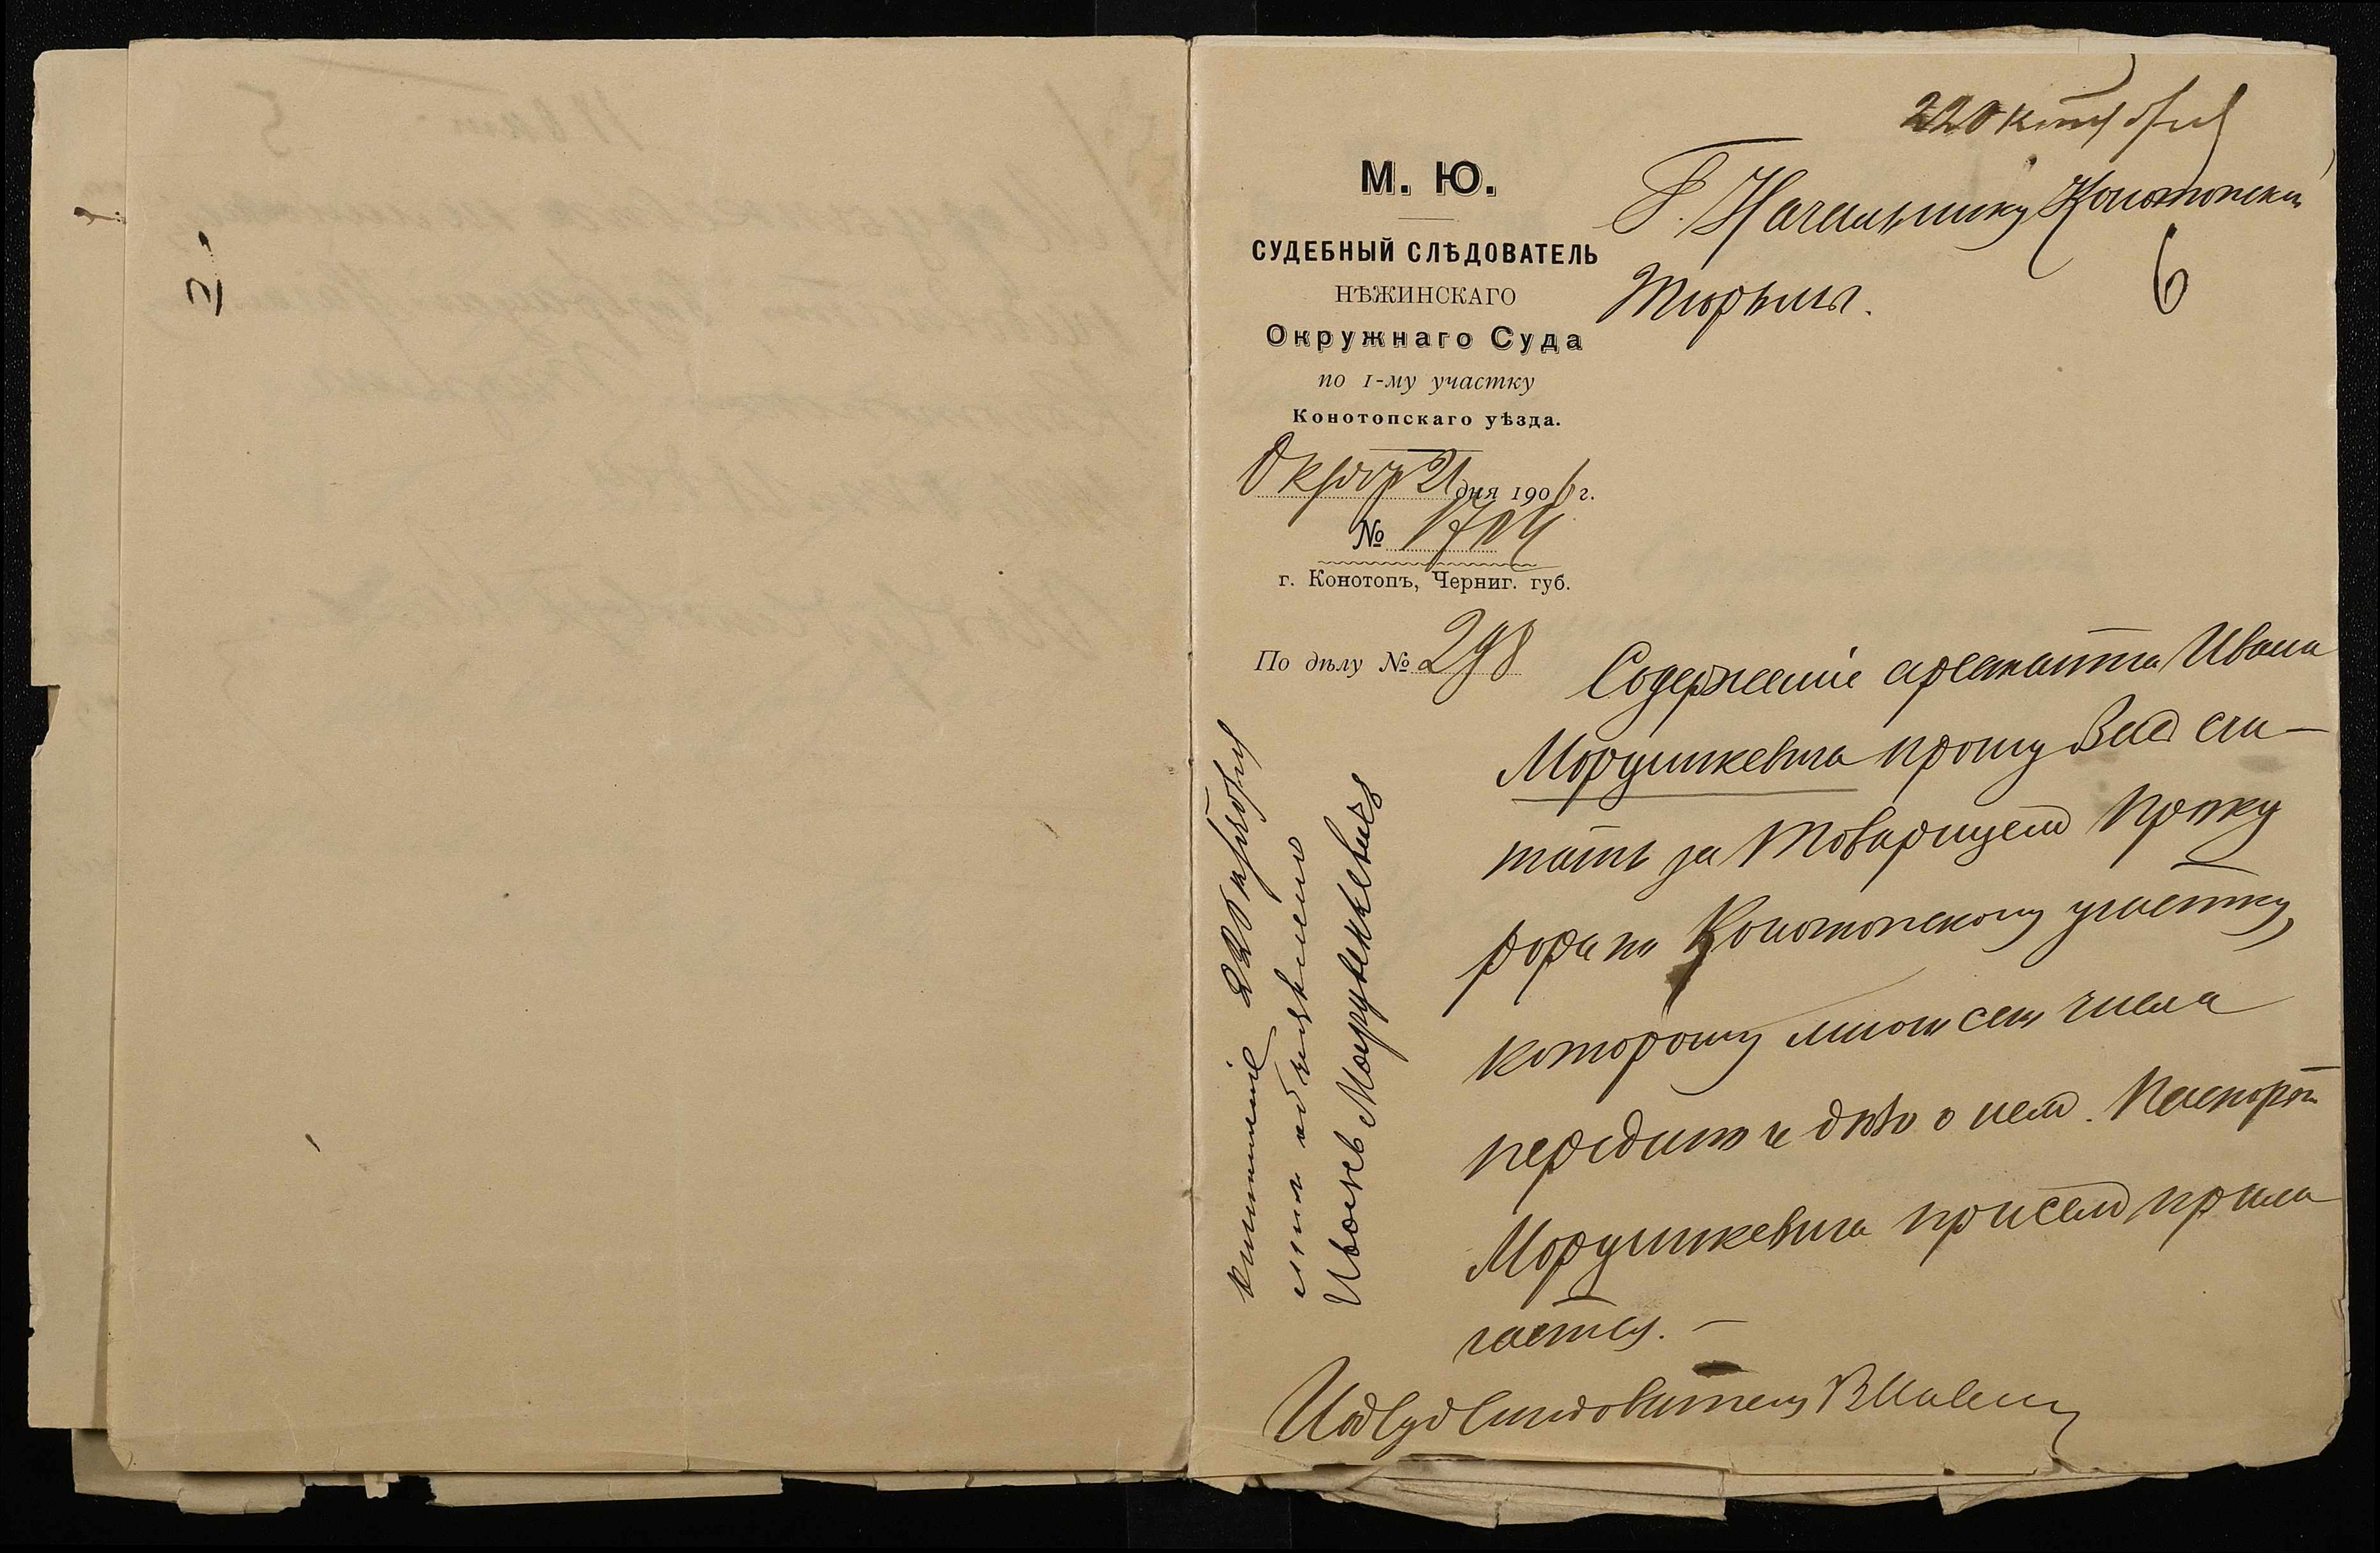 22 Октября
Г. Начальнику Конотопской
6
Тюрьмы.
М. Ю.
СУДЕБНЫЙ СЛѢДОВАТЕЛЬ
НѢЖИНСКАГО
Окружнаго Суда
по 1-му участку
Конотопскаго уѣзда.
Октябр 21 дня 190 г.
№ 1704
г. Конотопъ, Черниг. губ.
По дѣлу № 298
Содержаніе арестанта Ивана
Морушкевича прошу Вас счи-
тать за Товарищем Проку
рора по Конотопскому участку,
которому мною сего числа
передано и дѣло о нем. Паспорт
Морушкевича при сем прила
гается. –
И о Суд Слѣдователя
22 Октября
мнѣ объявлено
Иванъ Морушкевичъ